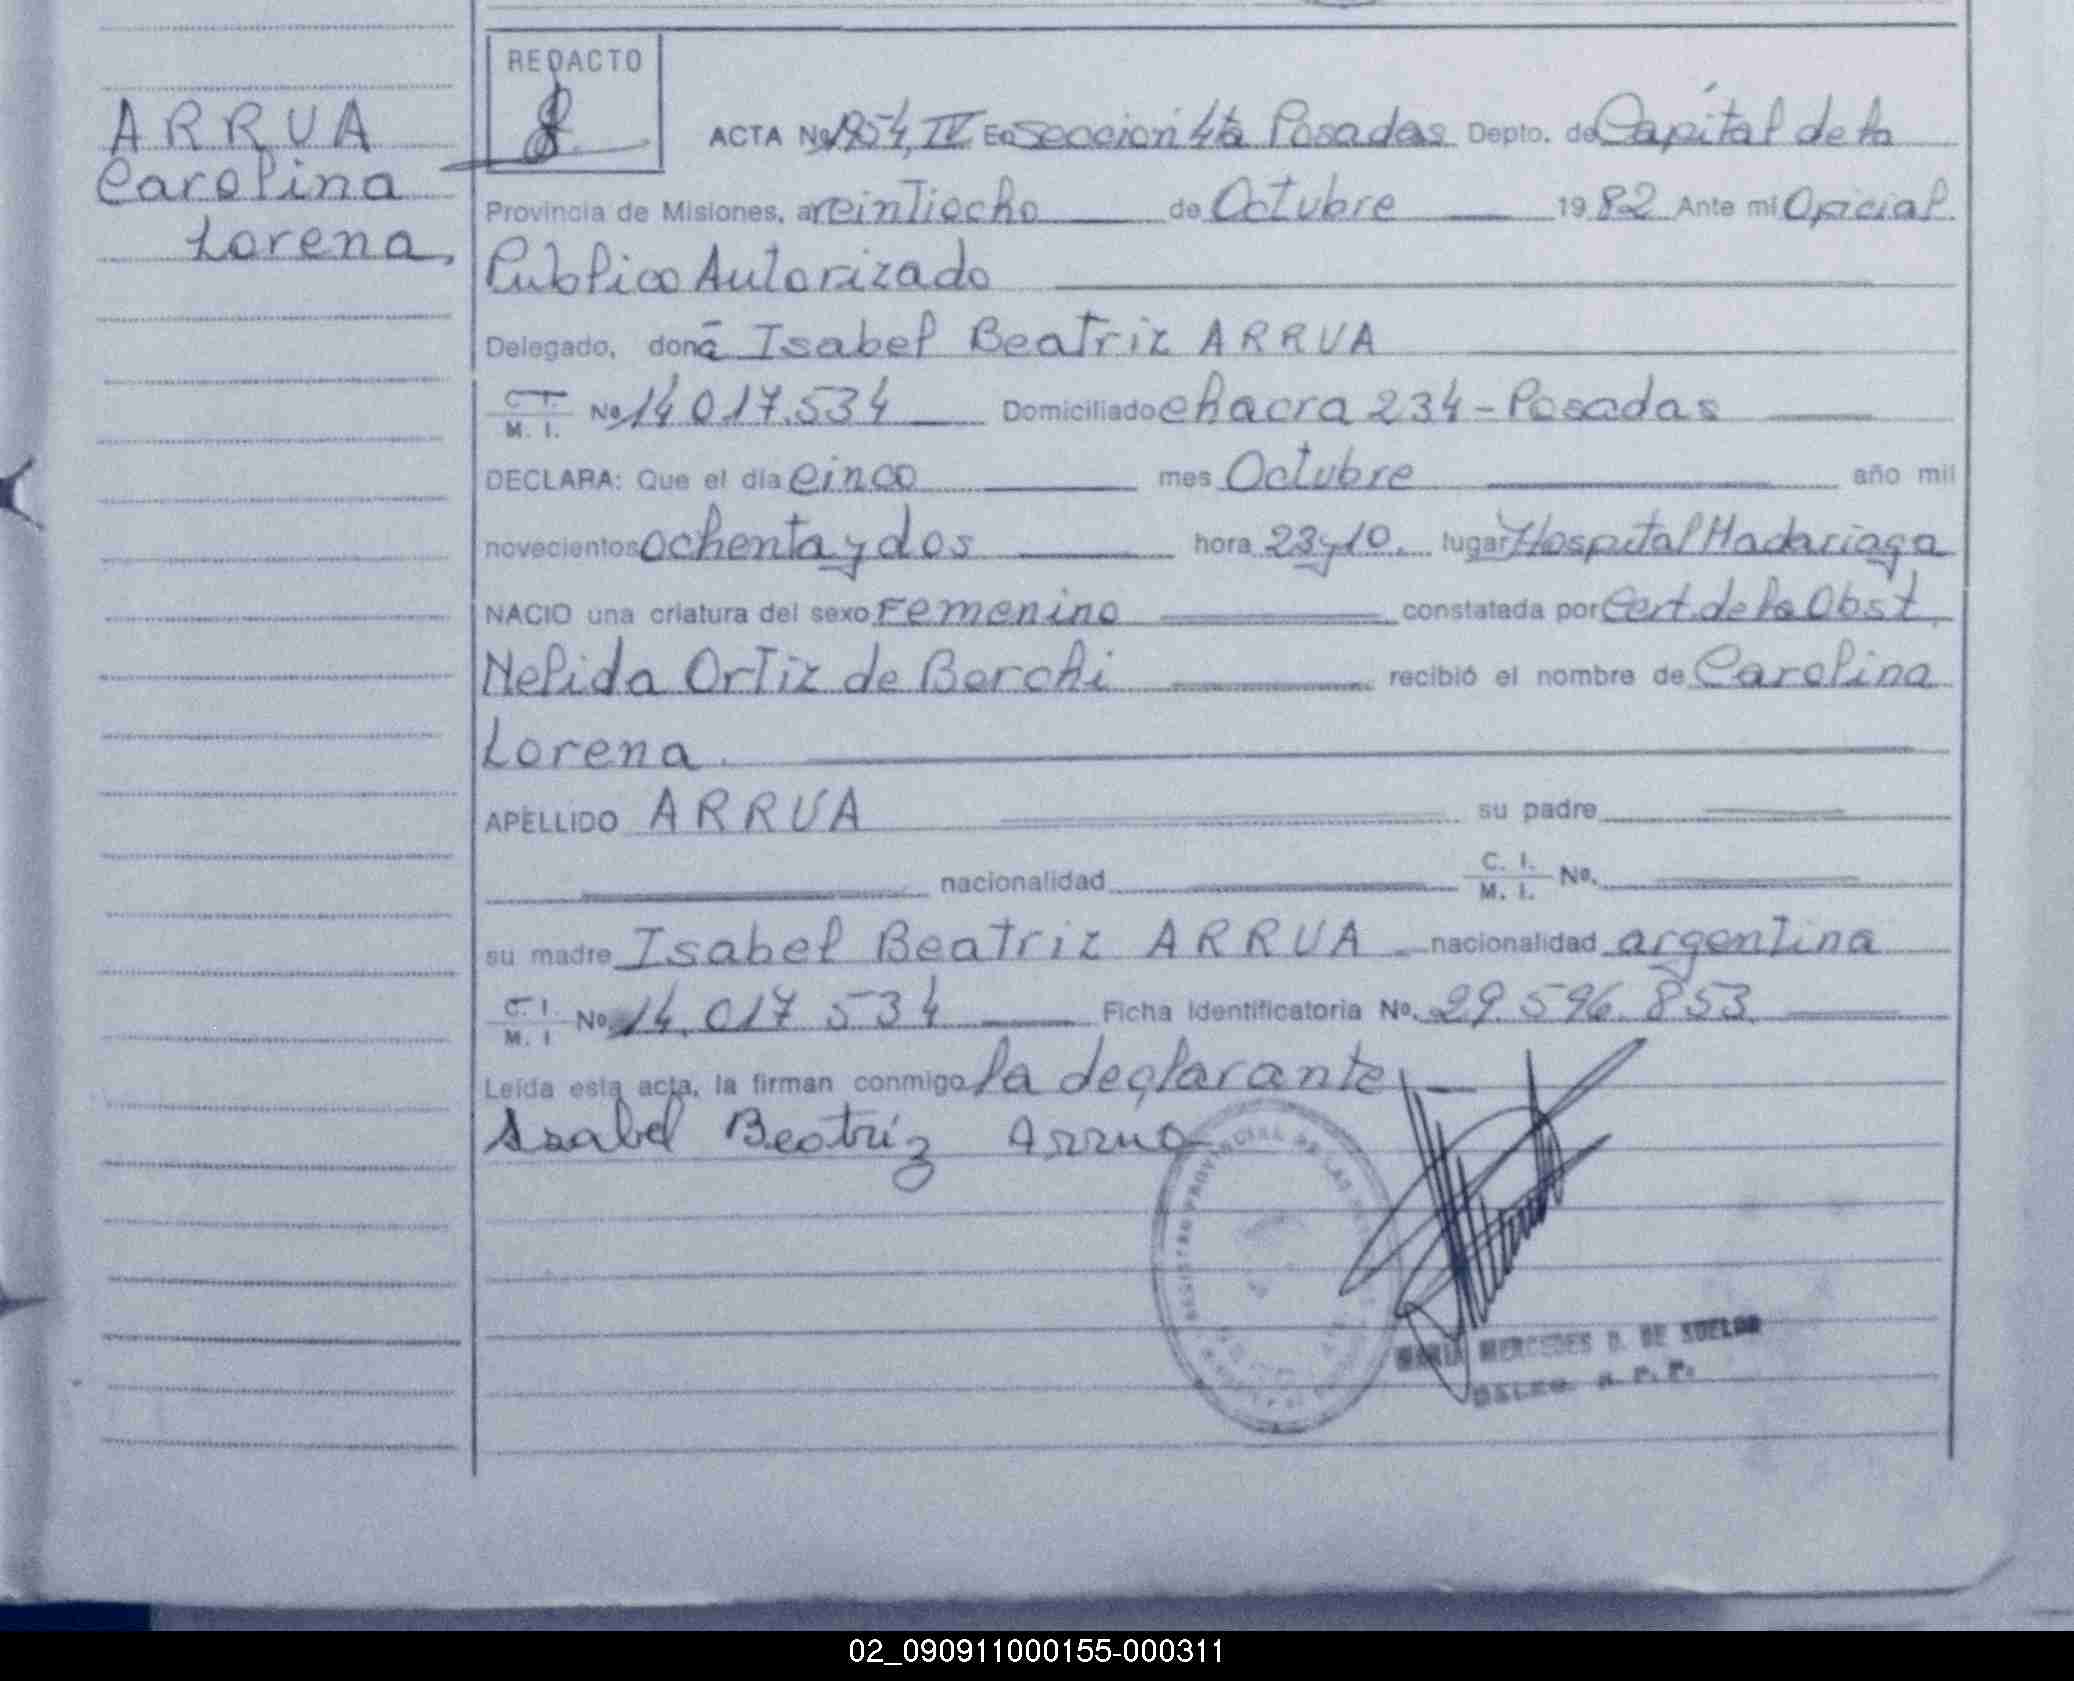 REDACTO
ARRUA
Carolina
Lorena,
ACTA No 1954, IV En seccion 4ta Posadas Depto. de Capital de la
Provincia de Misiones, a veintiocho de Octubre 19 82 Ante mi Oficial
Publico Autorizado
Delegado, doña Isabel Beatriz ARRUA
C. I. M. I. No 14 017.534 Domiciliado chacra 234 - Posadas
DECLARA: Que el día cinco mes Octubre año mil
novecientos ochenta y dos hora 23 y 10. lugar Hospital Madariaga
NACIO una criatura del sexo Femenino constatada por Cert. de la Obst.
Nelida Ortiz de Borchi recibió el nombre de Carolina
Lorena.
APELLIDO ARRUA su padre
nacionalidad C. I. M. I. No.
su madre Isabel Beatriz ARRUA nacionalidad argentina
C. I. M. I No 14.017 534 Ficha Identificatoria No. 29.596.853
Leída esta acta, la firman conmigo la declarante
Isabel Beatriz Arrua
PROVINCIAL DE LAS
MARIA MERCEDES D. DE
R. P. P.
02_090911000155-000311